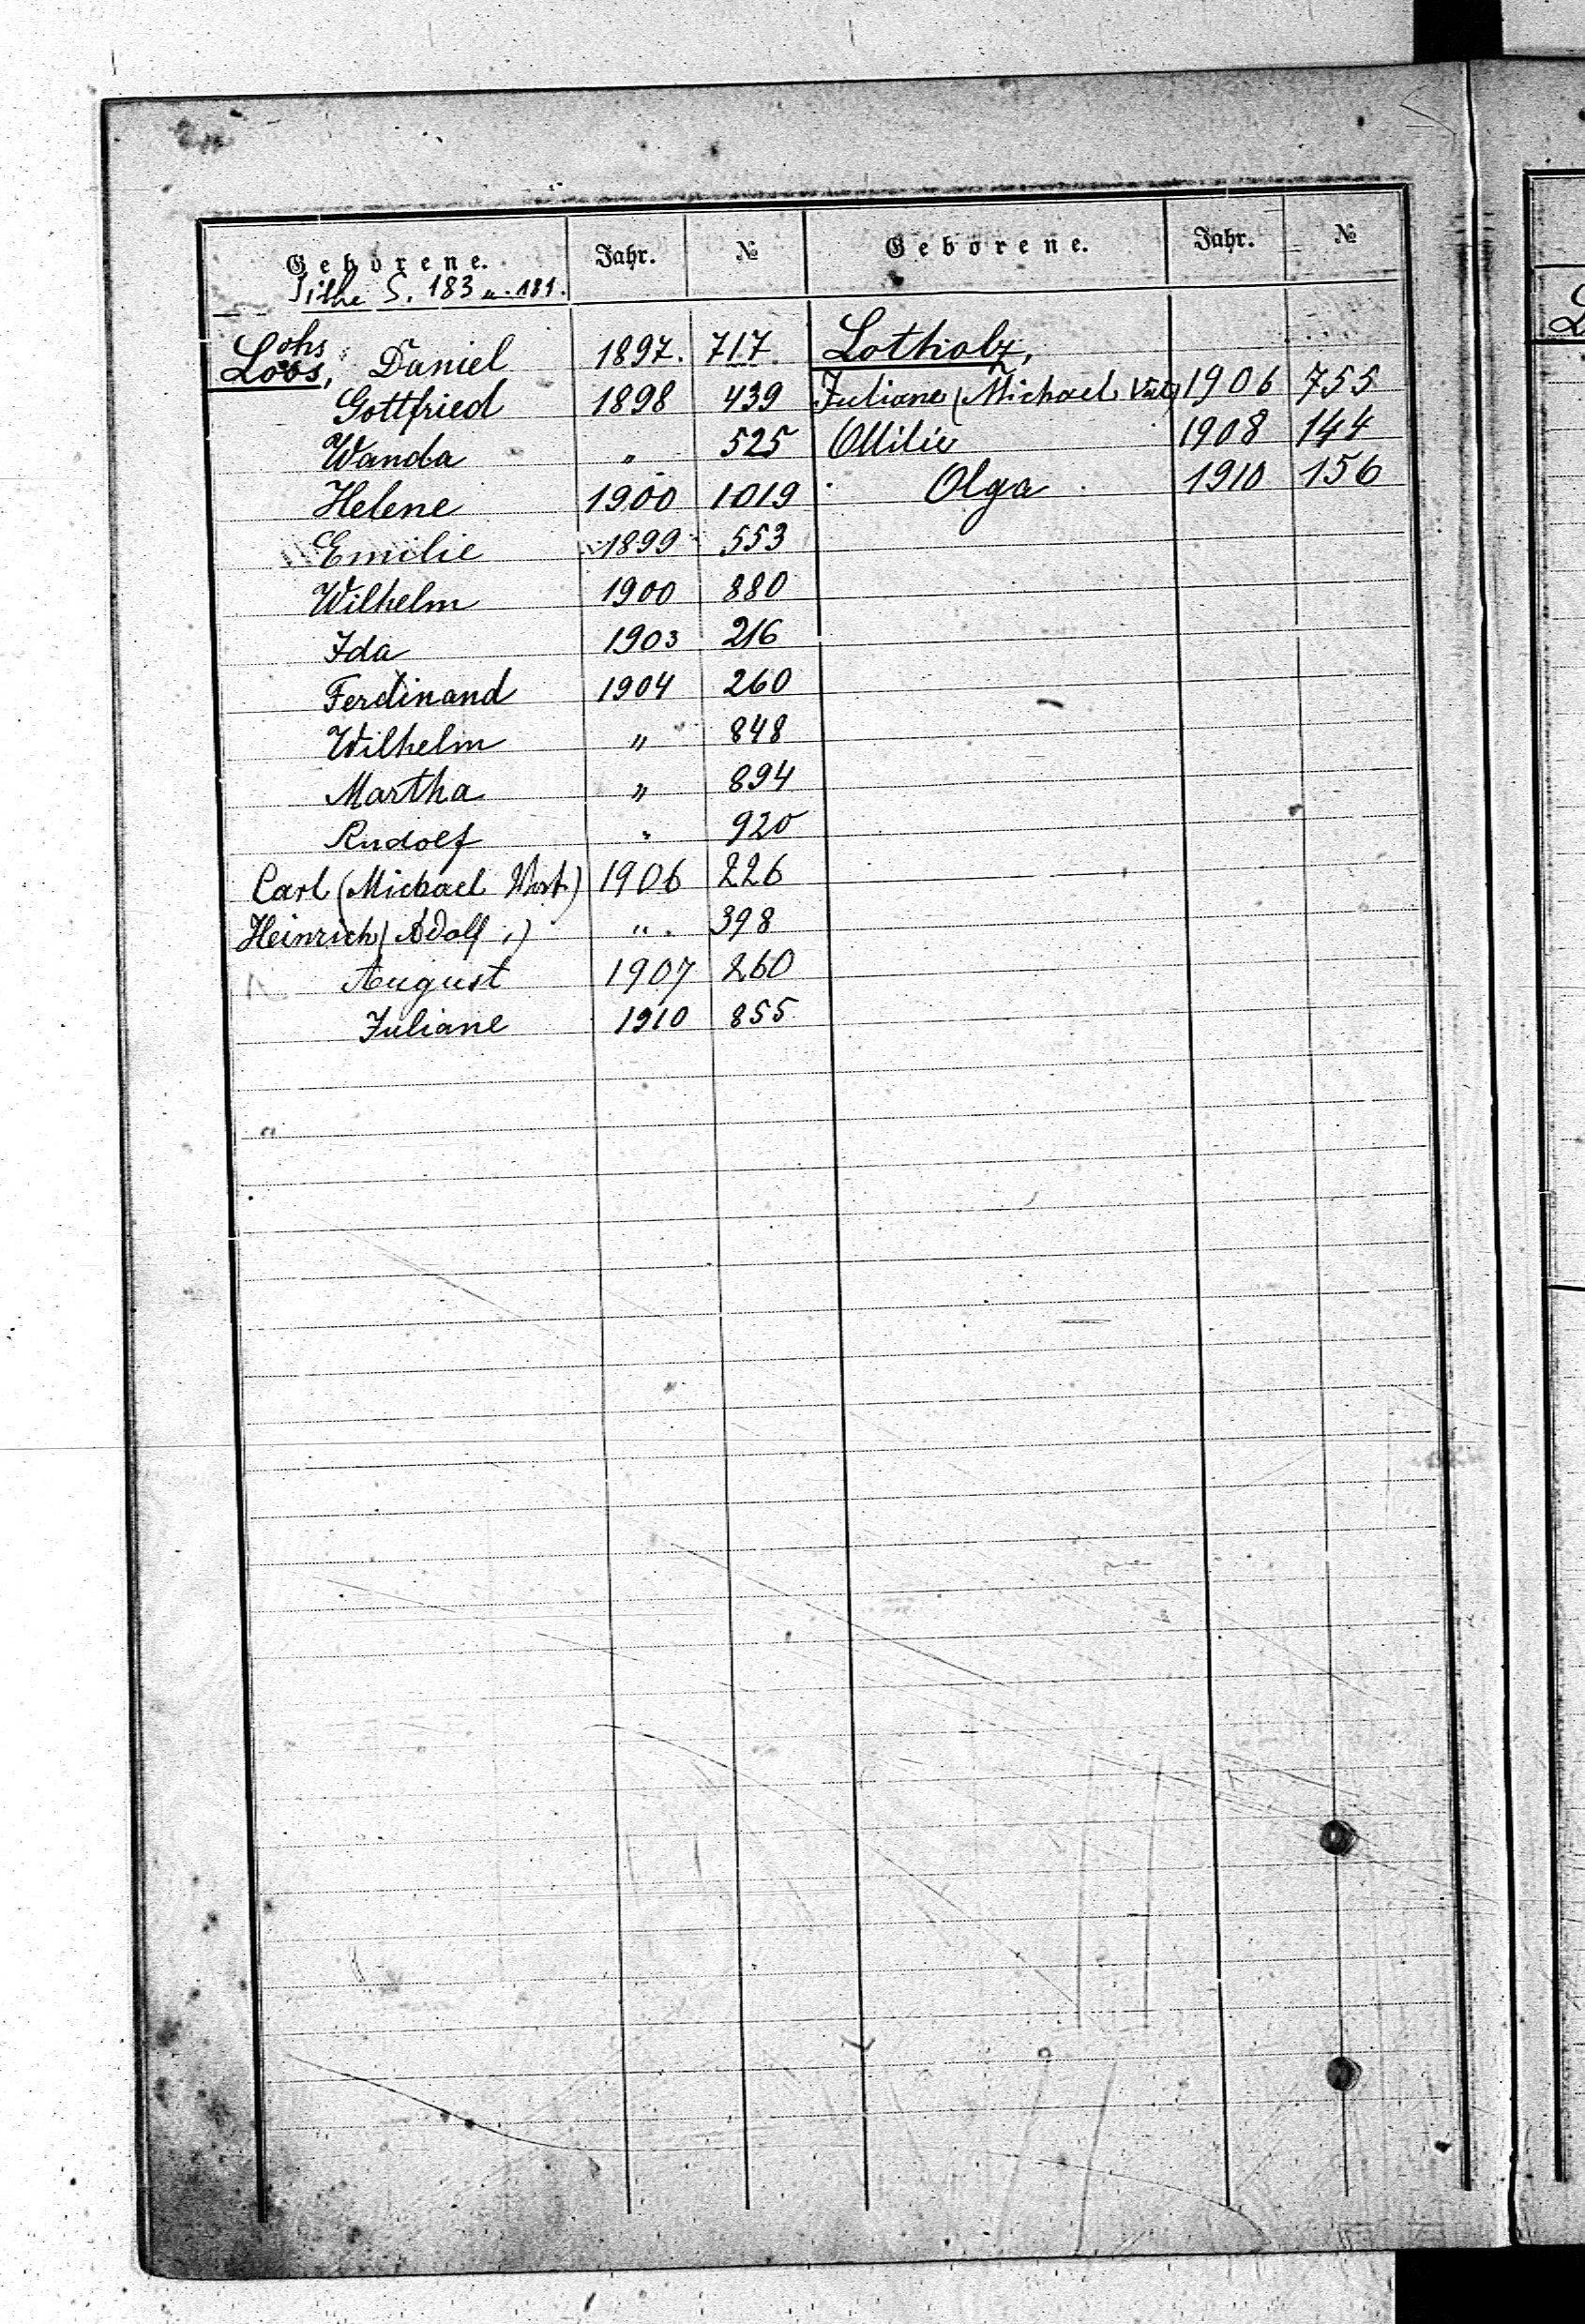 Geborene. Jahr. №
Siehe S. 183 u. 181.
Lohs
Loos, Daniel 1897. 717
Gottfried 1898 439
Wanda " 525
Helene 1900 1019
Emilie 1899 553
Wilhelm 1900 880
Ida 1903 216
Ferdinand 1904 260
Wilhelm " 848
Martha " 894
Rudolf " 920
Carl (Michael 1906 226
Heinrich (Adolf ") " 398
August 1907 260
Juliane 1910 855
Geborene. Jahr. №
Lotholz,
Juliane (Michael 1906 755
1908 144
Olga 1910 156